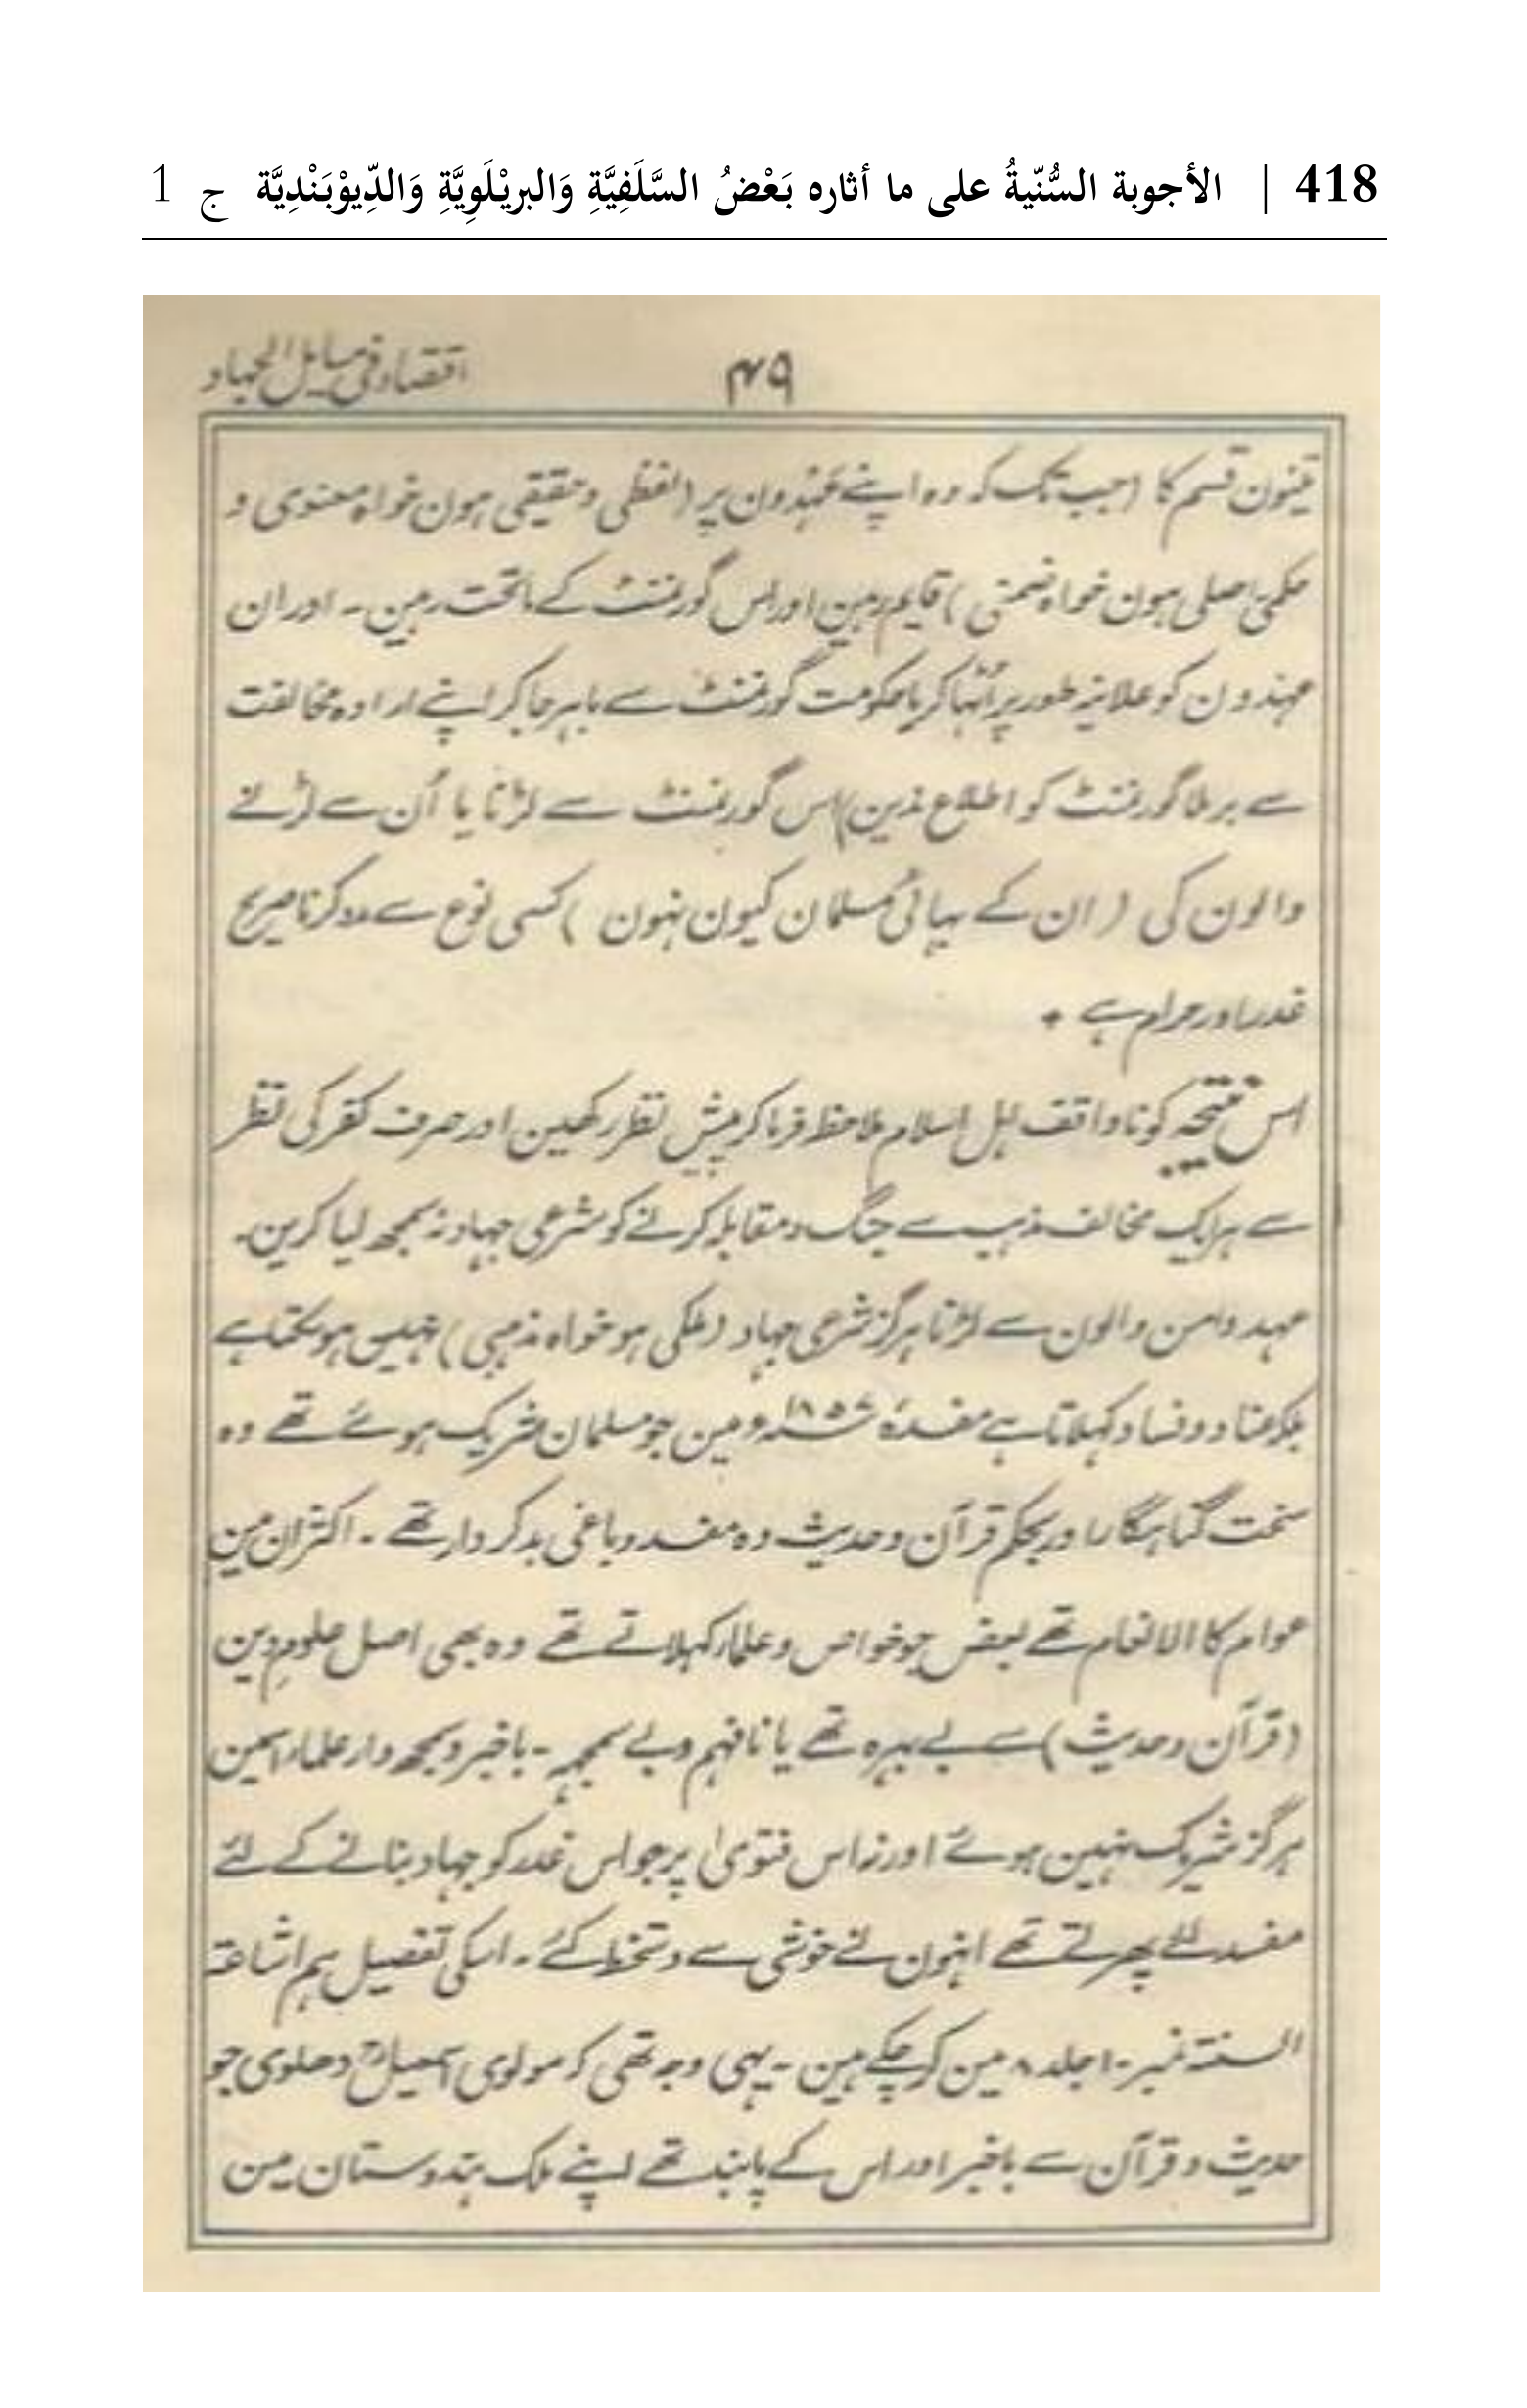 418 | الأجوبة السُّنّيةُ على ما أثاره بَعْضُ السَّلَفِيَّةِ وَالبريْلَوِيَّةِ وَالدِّيوْبَنْدِيَّة ج 1
۴۹ اقتصاد فی مسایل الجهاد
تینون قسم کا (جب تک کہ وہ اپنے عہدون پر (لفظی و حقیقی ہون خواہ معنوی و
حکمی اصلی ہون خواہ ضمنی) قایم رہین اور اس گورنمنٹ کے ماتحت رہین ۔ اور ان
عہدون کو علانیہ طور پر اُٹہا کر یا حکومت گورنمنٹ سے باہر جا کر اپنے ارادہ مخالفت
سے برملا گورنمنٹ کو اطلاع ندین) اس گورنمنٹ سے لڑنا یا اُن سے لڑنے
والون کی (ان کے بہائی مسلمان کیون نہون) کسی نوع سے مدد کرنا صریح
غدر اور حرام ہے +
اس نتیجہ کو ناواقف اہل اسلام ملاحظہ فرما کر پیش نظر رکھین اور صرف کفر کی نظر
سے ہر ایک مخالف مذہب سے جنگ و مقابلہ کرنے کو شرعی جہاد نہ سمجھ لیا کرین۔
عہد و امن والون سے لڑنا ہرگز شرعی جہاد (ملکی ہو خواہ مذہبی) نہیں ہو سکتا ہے
بلکہ عناد و فساد کہلاتا ہے مفسدۂ ۱۸۵۷ء مین جو مسلمان شریک ہوئے تھے وہ
سخت گناہگار اور بحکم قرآن و حدیث وہ مفسد و باغی بدکردار تھے ۔ اکثر ان مین
عوام کالانعام تھے بعض جو خواص و علماء کہلاتے تھے وہ بھی اصل علومِ دین
(قرآن و حدیث) سے بے بہرہ تھے یا نافہم و بے سمجہہ ۔ باخبر و سمجھ دار علماء اسمین
ہرگز شریک نہین ہوئے اور نہ اس فتویٰ پر جو اس غدر کو جہاد بنانے کے لئے
مفسد لئے پھرتے تھے انہون نے خوشی سے دستخط کئے ۔ اسکی تفصیل ہم اشاعۃ
السنۃ نمبر ۱۰ جلد ۸ مین کر چکے ہین ۔ یہی وجہ تھی کہ مولوی اسمعیلؒ دہلوی جو
حدیث و قرآن سے باخبر اور اس کے پابند تھے اپنے ملک ہندوستان مین